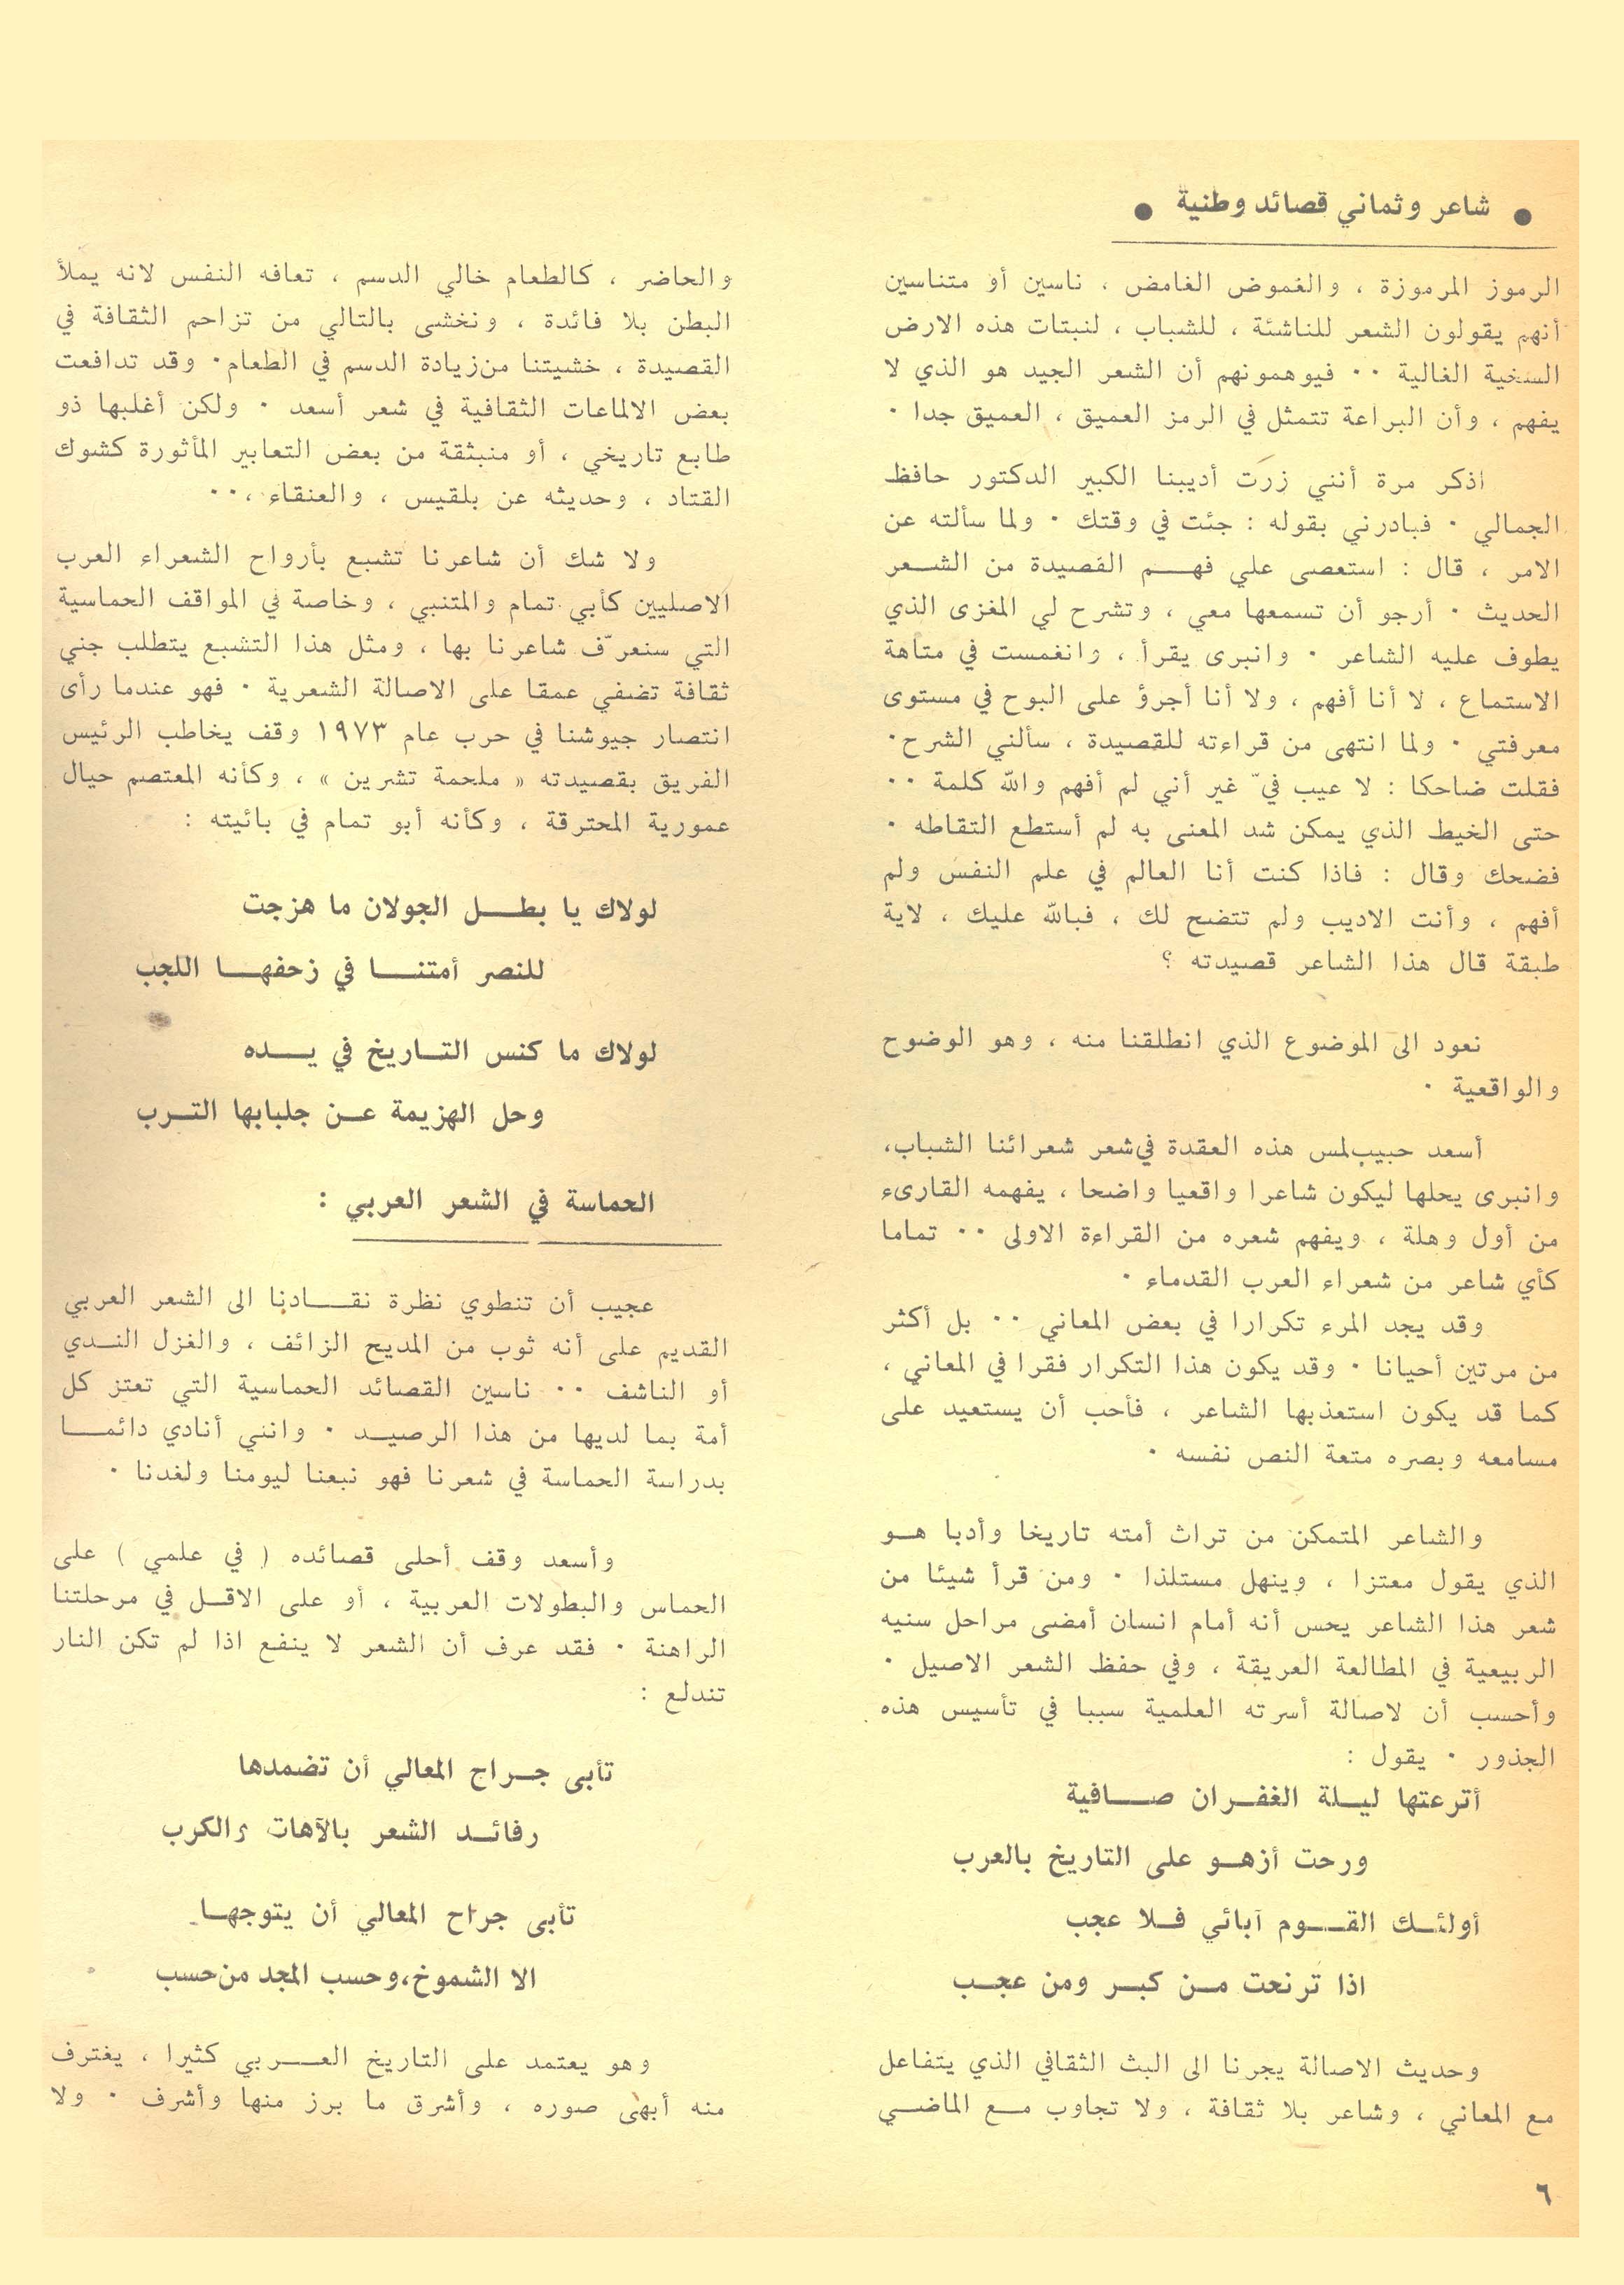 ● شاعر وثماني قصائد وطنية ●
الرموز المرموزة ، والغموض الغامض ، ناسين أو متناسين
أنهم يقولون الشعر للناشئة ، للشباب ، لنبتات هذه الارض
السخية الغالية ٠٠ فيوهمونهم أن الشعر الجيد هو الذي لا
يفهم ، وأن البراعة تتمثل في الرمز العميق ، العميق جدا ٠
اذكر مرة أنني زرت أديبنا الكبير الدكتور حافظ
الجمالي ٠ فبادرني بقوله : جئت في وقتك ٠ ولما سألته عن
الامر ، قال : استعصى علي فهـــم القصيدة من الشـــعر
الحديث ٠ أرجو أن تسمعها معي ، وتشرح لي المغزى الذي
يطوف عليه الشاعر ٠ وانبرى يقرأ ، وانغمست في متاهة
الاستماع ، لا أنا أفهم ، ولا أنا أجرؤ على البوح في مستوى
معرفتي ٠ ولما انتهى من قراءته للقصيدة ، سألني الشرح٠
فقلت ضاحكا : لا عيب فيّ غير أني لم أفهم والله كلمة ٠٠
حتى الخيط الذي يمكن شد المعنى به لم أستطع التقاطه ٠
فضحك وقال : فاذا كنت أنا العالم في علم النفس ولم
أفهم ، وأنت الاديب ولم تتضح لك ، فبالله عليك ، لاية
طبقة قال هذا الشاعر قصيدته ؟
نعود الى الموضوع الذي انطلقنا منه ، وهو الوضوح
والواقعية ٠
أسعد حبيب لمس هذه العقدة في شعر شعرائنا الشباب،
وانبرى يحلها ليكون شاعرا واقعيا واضحا ، يفهمه القارىء
من أول وهلة ، ويفهم شعره من القراءة الاولى ٠٠ تماما
كأي شاعر من شعراء العرب القدماء ٠
وقد يجد المرء تكرارا في بعض المعاني ٠٠ بل أكثر
من مرتين أحيانا ٠ وقد يكون هذا التكرار فقرا في المعاني ،
كما قد يكون استعذبها الشاعر ، فأحب أن يستعيد على
مسامعه وبصره متعة النص نفسه ٠
والشاعر المتمكن من تراث أمته تاريخا وأدبا هــو
الذي يقول معتزا ، وينهل مستلذا ٠ ومن قرأ شيئا من
شعر هذا الشاعر يحس أنه أمام انسان أمضى مراحل سنيه
الربيعية في المطالعة العريقة ، وفي حفظ الشعر الاصيل ٠
وأحسب أن لاصالة أسرته العلمية سببا في تأسيس هذه
الجذور ٠ يقول :
أترعتها ليـــلة الغفـــران صــــافية
ورحت أزهــو على التاريخ بالعرب
أولئــك القــــوم آبائي فــلا عجب
اذا ترنحت مــن كبــر ومن عجــب
وحديث الاصالة يجرنا الى البث الثقافي الذي يتفاعل
مع المعاني ، وشاعر بلا ثقافة ، ولا تجاوب مــع الماضــي
والحاضر ، كالطعام خالي الدسم ، تعافه النفس لانه يملأ
البطن بلا فائدة ، ونخشى بالتالي من تزاحم الثقافة في
القصيدة ، خشيتنا من زيادة الدسم في الطعام٠ وقد تدافعت
بعض الالماعات الثقافية في شعر أسعد ٠ ولكن أغلبها ذو
طابع تاريخي ، أو منبثقة من بعض التعابير المأثورة كشوك
القتاد ، وحديثه عن بلقيس ، والعنقاء ،٠٠
ولا شك أن شاعرنا تشبع بأرواح الشعراء العرب
الاصليين كأبي تمام والمتنبي ، وخاصة في المواقف الحماسية
التي سنعرّف شاعرنا بها ، ومثل هذا التشبع يتطلب جني
ثقافة تضفي عمقا على الاصالة الشعرية ٠ فهو عندما رأى
انتصار جيوشنا في حرب عام ١٩٧٣ وقف يخاطب الرئيس
الفريق بقصيدته « ملحمة تشرين » ، وكأنه المعتصم حيال
عمورية المحترقة ، وكأنه أبو تمام في بائيته :
لولاك يا بطـــل الجولان ما هزجت
للنصر أمتنــــا في زحفهــــا اللجب
لولاك ما كنس التــاريخ في يـــده
وحل الهزيمة عــن جلبابها التــرب
الحماسة في الشعر العربي :
عجيب أن تنطوي نظرة نقــــادنا الى الشعر العربي
القديم على أنه ثوب من المديح الزائف ، والغزل النــدي
أو الناشف ٠٠ ناسين القصائد الحماسية التي تعتز كل
أمة بما لديها من هذا الرصيــد ٠ وانني أنادي دائمــــا
بدراسة الحماسة في شعرنا فهو نبعنا ليومنا ولغدنا ٠
وأسعد وقف أحلى قصائده ( في علمي ) على
الحماس والبطولات العربية ، أو على الاقــل في مرحلتنا
الراهنة ٠ فقد عرف أن الشعر لا ينفع اذا لم تكن النار
تندلع :
تأبى جــراح المعالي أن تضمدها
رفائــد الشعر بالآهات والكرب
تأبى جراح المعالي أن يتوجهــا
الا الشموخ،وحسب المجد من حسب
وهو يعتمد على التاريخ العــــربي كثيرا ، يغترف
منه أبهى صوره ، وأشرق ما برز منها وأشرف ٠ ولا
٦